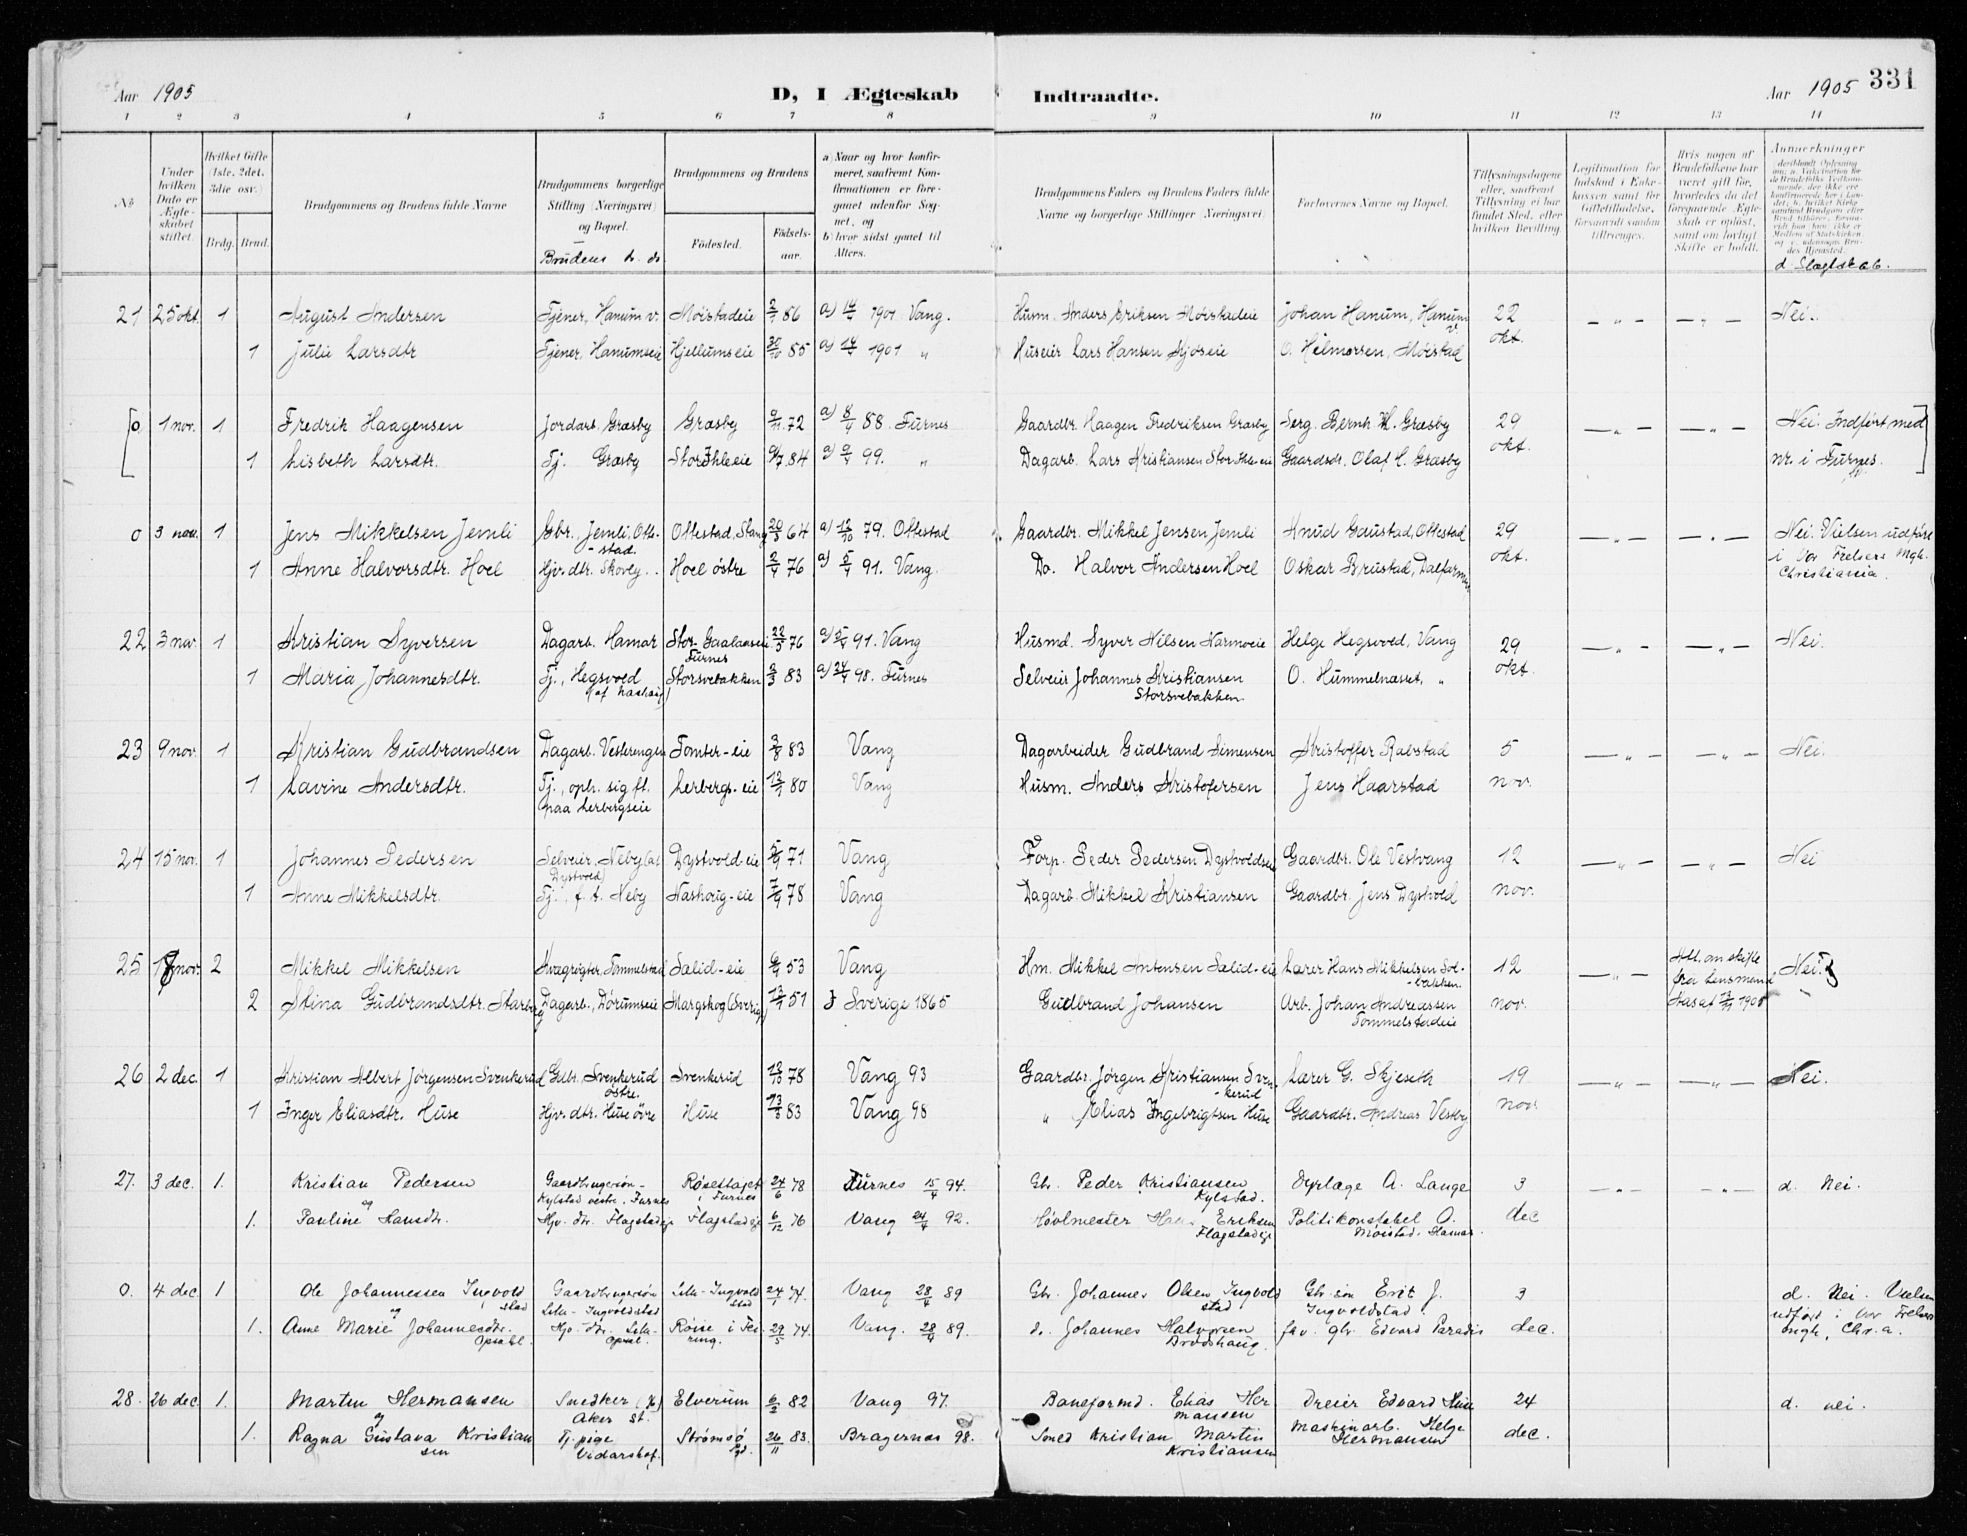 Aar 1905
D, I Ægteskab
Indtraadte.
Aar 1905
331
1 2 3 4 5 6 7 8 9 10 11 12 13 14
№
Under hvilken Dato er Ægteskabet stiftet.
Hvilket Gifte (1ste, 2det, 3die osv.)
Brdg. Brud.
Brudgommens og Brudens fulde Navne
Brudgommens borgerlige Stilling (Næringsvei) og Bopæl.
Brudens do. do
Brudgommens og Brudens
Fødested.
Fødselsaar.
a) Naar og hvor konfirmeret, saafremt Konfirmationen er foregaaet udenfor Sognet, og
b) hvor sidst gaaet til Alters.
Brudgommens Faders og Brudens Faders fulde Navne og borgerlige Stillinger (Næringsvei)
Forlovernes Navne og Bopæl.
Tillysningsdagene eller, saafremt Tillysning ei har fundet Sted, efter hvilken Bevilling.
Legitimation for Indskud i Enkekassen samt for Giftetilladelse, forsaavidt saadan tiltrænges.
Hvis nogen af Brudefolkene har været gift før, hvorledes da det foregaaende Ægteskab er opløst, samt om lovligt Skifte er holdt.
Anmærkninger
d Slægtskab.
21 25 okt. 1 August Andersen Tjener, Hanum v. Møistadeie 2/1 86 a) 14/4 1901 Vang. Husm. Anders Eriksen Møistadeie Johan Hanum, Hanum v. 22 — „ — — „ — Nei.
1 Julie Larsdtr Tjener, Hanumseie Hjellumseie 30/10 85 a) 14/4 1901 „ Huseier Lars Hansen O. Hilmarsen, Møistad okt.
0. 1 nov. 1 Fredrik Haagensen Jordarb. Græsby Græsby 9/11 72 a) 8/4 88. Furnes Gaardbr. Haagen Fredriksen Græsby Serg. Bernh. H. Græsby 29 — „ — — „ — Nei. Indført med
1 Lisbeth Larsdtr. Tj. Græsby Stor Ihleeie 9/7 84 a) 9/4 99. „ Dagarb. Lars Kristiansen Stor Ihle-eie Gaardsdr. Olaf H. Græsby okt. nr. i Furnes.
0 3 nov. 1 Jens Mikkelsen Jemli Gbr. Jemli, Otte-stad. Ottestad, Stange 20/3 64 a) 12/10 79. Ottestad Gaardbr. Mikkel Jensen Jemli Knud Gaustad, Ottestad 29 — „ — — „ — Nei. Vielsen udført
1 Anne Halvorsdtr. Hoel Hjv. dtr. Skovly. Hoel østre 2/4 76 a) 5/4 91. Vang. Do. Halvor Andersen Hoel Oskar Brustad, Dalfarmen okt. i Vor Frelsers Mgh. Christiania.
22 3 nov. 1 Kristian Syversen Dagarb. Hamar Stor-Gaalaaseie Furnes 22/5 76 a) 5/4 91. Vang Husmd. Syver Nilsen Narmoeie Helge Hegsvold, Vang 29 — „ — — „ — Nei.
1 Maria Johannesdtr. Tj., Hegsvold Storsvebakken 2/3 83 a) 24/4 98. Furnes Selveier Johannes Kristiansen Storsvebakken O. Hummelnæset, „ okt.
23 9 nov. 1 Kristian Gudbrandsen Dagarb. Vesterengen Tomter-eie 3/8 83 Vang Dagarbeider Gudbrand Simensen Kristoffer Rabstad 5 — „ — — „ — Nei.
1 Lavine Andersdtr. Tj., oph. sig ft. paa Lerbergseie Lerbergs-eie 12/1 80 Vang Husm. Anders Kristofersen Jens Haarstad nov.
24 15 nov. 1 Johannes Pedersen Selveier, Neby (af Dystvold) Dystvold-eie 5/9 71 Vang Forp. Peder Pedersen Dystvoldseie Gaardbr. Ole Vestvang 12 — „ — — „ — Nei
1 Anne Mikkelsdtr. Tj., f. t. Neby Nashoug-eie 7/9 78 Vang Dagarb. Mikkel Kristiansen Gaardbr. Jens Dystvold nov.
25 17 nov. 2 Mikkel Mikkelsen Kvægrøgter, Tommelstad Sælid-eie 6/9 53 Vang Hm. Mikkel Antonsen Sælid-eie Lærer Hans Mikkelsen Sol-bakken. 12 — „ — Att. om skifte fra Lensmand Nei.
2 Stina Gudbrandsdtr. Starberg Dagarb., Dørumseie Margskog (Sverige) 13/4 51 I Sverige 1865 Gudbrand Johansen Arb. Johan Andreassen Tommelstadeie nov.
26 2 dec. 1 Kristian Albert Jørgensen Svenkerud Gdbr. Svenkerud østre. Svenkerud 12/10 78 Vang 93 Gaardbr. Jørgen Kristiansen Sven-kerud Lærer G. Skjeseth 19 — „ — — „ — Nei.
1 Inger Eliasdtr. Huse Hjv. dtr. Huse övre Huse 13/8 83 Vang 98 „ Elias Ingebrigtsen Huse Gaardbr. Andreas Vestby nov.
27. 3 dec. 1. Kristian Pedersen Gaardbrugersøn - Kylstad vestre. Furnes Røsettajet i Furnes 24/6 78 Furnes 15/4 94. Gb. Peder Kristiansen Kylstad. Dyrlæge A. Lange 3 — „ — — „ — d. Nei.
1. og Pauline Hansdtr. Hjv. dtr. Flagstadeje Flagstadeje 6/12 76 Vang 24/4 92. Høvlmester Hans Eriksen Flagstadeje Politikonstabel O. Møistad. Hamar. dec
0. 4 dec. 1 Ole Johannessen Ingvold stad Gaardbrugersøn Lille-Ingvoldstad Lille-Ingvold stad 24/1 74. Vang 28/4 89 Gb. Johannes Olsen Ingvold stad Gb. søn Erik J. Ingvoldstad. 3 d. Nei. Vielsen
1. og Anne Marie Johannesdtr. Opsahl. Hjv. dtr. Lille-Opsal. 29/5 74. Vang. 28/4 89. do. Johannes Halvorsen fhv. gbr. Edvard Paradis dec. udført i Vor Frelsers mgh, Chr.a.
28. 26 dec. 1. Martin Hermansen Snedker Aker st. Elverum 6/2 82 Vang 97. Baneformd. Elias Her mansen Dreier Edvard Huse 24 d. nei.
1. og Ragna Gustava Kristian sen Tj. pige Vidarshof. Strømsø 26/11 83. Bragernes 98. Smed Kristian Martin Kristiansen Maskinarb. Helge Hermansen dec.